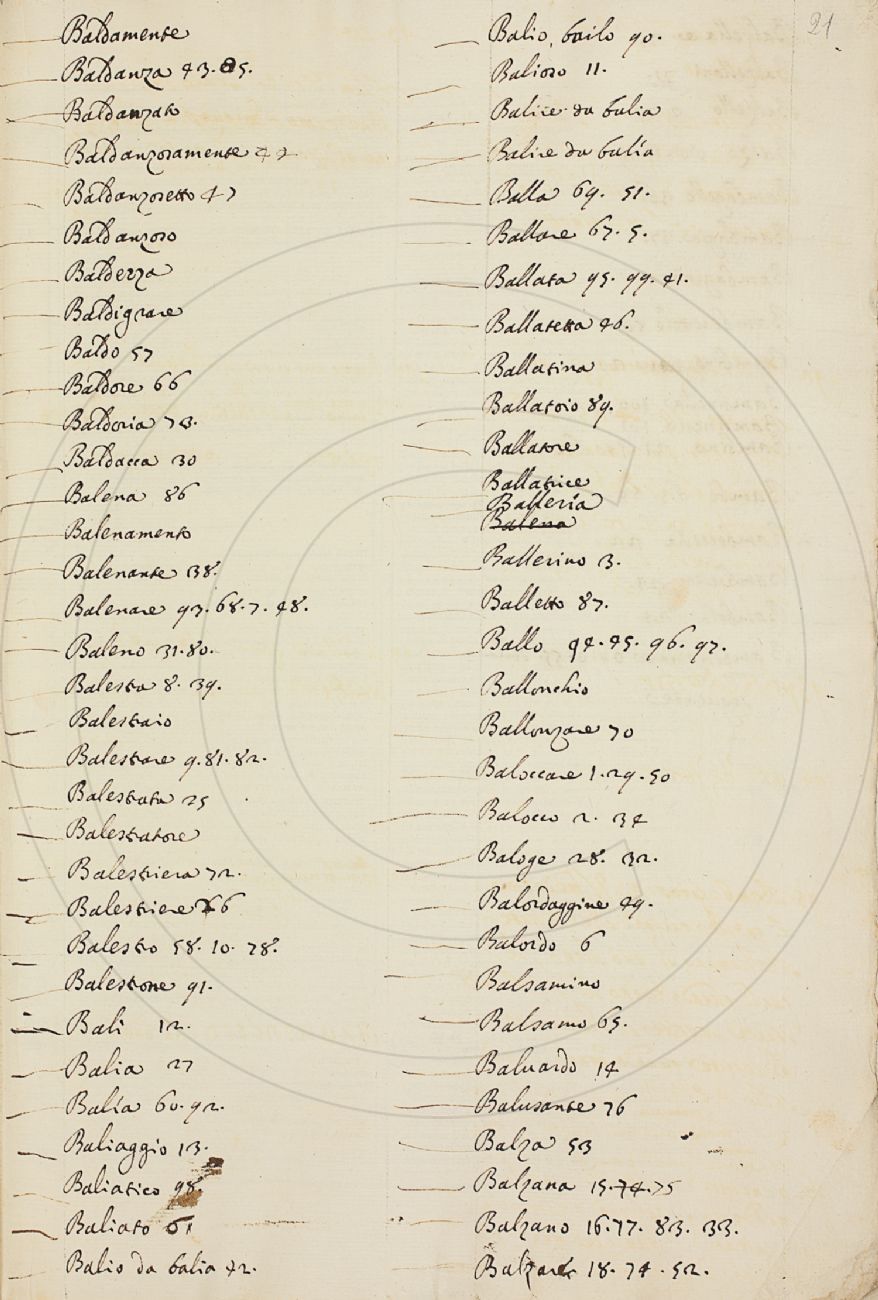 21
Baldamente
Baldanza 43. 85.
Baldanzato
Baldanzosamente 42
Baldanzosetto 47
Baldanzoso
Baldezza
Baldigrare
Baldo 57
Baldore 66
Baldoria 73.
Baldacca 30
Balena 86
Balenamento
Balenante 38.
Balenare 93. 68. 7. 48.
Baleno 31. 80.
Balestra 8. 39.
Balestraio
Balestrare 9. 81. 82.
Balestrata 25
Balestratore
Balestriera 72.
Balestriere 66
Balestro 58. 10. 78.
Balestrone 91.
Bali 12.
Balia 27
Balía 60. 92.
Baliaggio 13.
Baliatico 98.
Baliato 61
Balio da balia 42.
Balio, bailo 90.
Balioso 11.
Balice da balia
Balire da balía
Balla 69. 51.
Ballare 67. 5.
Ballata 95. 99. 41.
Ballatetta 46.
Ballatina
Ballatoio 89.
Ballatore
Ballatrice
Balleria
Balena
Ballerino 3.
Balletto 87.
Ballo 94. 45. 96. 97.
Ballonchio
Ballonzare 70
Baloccare 1. 29. 50
Balocco 2. 34
Baloge 28. 32.
Balordaggine 49.
Balordo 6
Balsamino
Balsamo 65.
Baluardo 14
Balusante 76
Balza 53
Balzana 15. 74. 75
Balzano 16. 77. 83. 33.
Balzare 18. 74. 52.